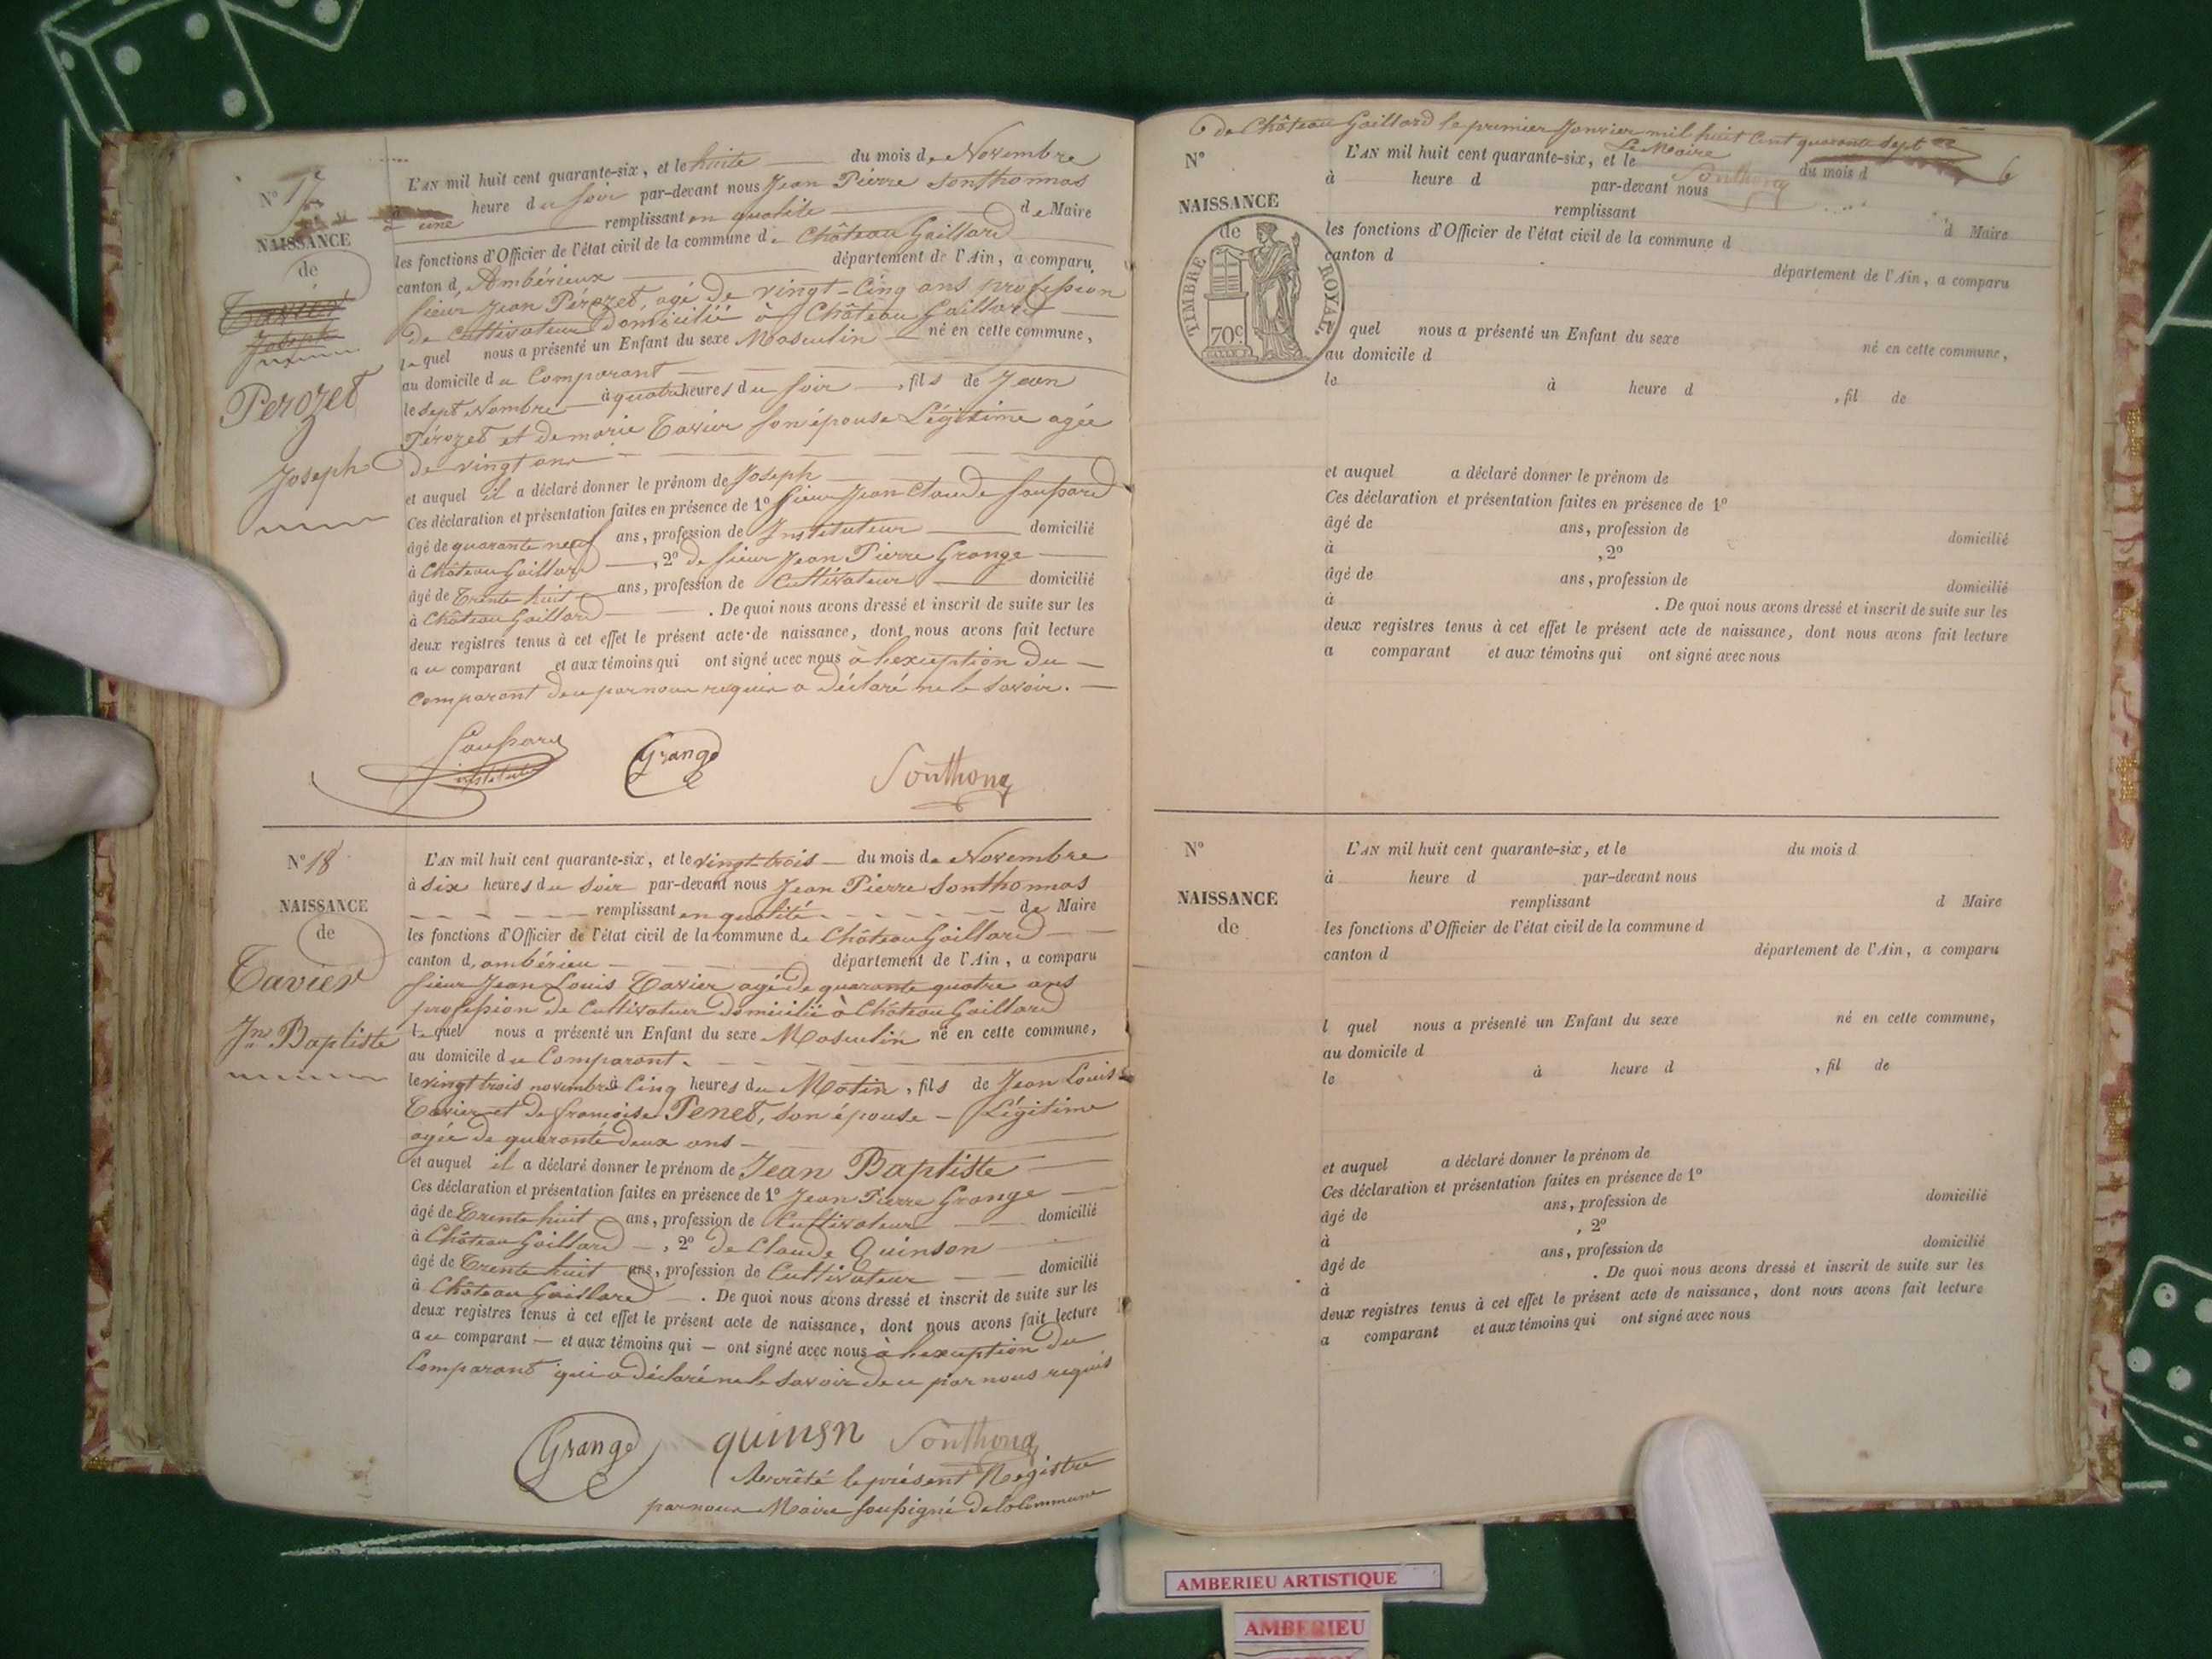 N° 17
NAISSANCE
de
Tavier
Joseph
Perozet
Joseph
L'AN mil huit cent quarante-six, et le huite du mois de Novembre
à une heure du soir par-devant nous Jean Pierre Sonthonnas
remplissant en qualité de Maire
les fonctions d'Officier de l'état civil de la commune de Château Gaillard
canton d'Ambérieux département de l'Ain, a comparu
sieur Jean Perozet, agé de vingt-cinq ans profession
de cultivateur domicilié à Château Gaillard
lequel nous a présenté un Enfant du sexe Masculin né en cette commune,
au domicile du Comparant
le sept Nombre à quatre heures du soir, fils de Jean
Pérozet et de marie Tavier son épouse Légitime agée
de vingt ans
et auquel il a déclaré donner le prénom de Joseph
Ces déclaration et présentation faites en présence de 1° sieur Jean Claude
âgé de quarante neuf ans, profession de Instituteur domicilié
à Château Gaillard, 2° de sieur Jean Pierre Grange
âgé de Trente huit ans, profession de Cultivateur domicilié
à Château Gaillard. De quoi nous avons dressé et inscrit de suite sur les
deux registres tenus à cet effet le présent acte de naissance, dont nous avons fait lecture
au comparant et aux témoins qui ont signé avec nous à l'exception du
comparant de ce par nous requis a déclaré ne le savoir.
Grange
Sonthonas
N° 18
NAISSANCE
de
Tavier
Jn Baptiste
L'AN mil huit cent quarante-six, et le vingt trois du mois de Novembre
à six heures du soir par-devant nous Jean Pierre Sonthonnas
remplissant en qualité de Maire
les fonctions d'Officier de l'état civil de la commune de Château Gaillard
canton d'ambérieu département de l'Ain, a comparu
sieur Jean Louis Tavier agé de quarante quatre ans
profession de Cultivateur domicilié à Château Gaillard
lequel nous a présenté un Enfant du sexe Masculin né en cette commune,
au domicile du Comparant.
le vingt trois novembre à Cinq heures du Matin, fils de Jean Louis
Tavier et de françoise Penet, son épouse Légitime
agée de quarante deux ans
et auquel il a déclaré donner le prénom de Jean Baptiste
Ces déclaration et présentation faites en présence de 1° Jean Pierre Grange
âgé de Trente huit ans, profession de Cultivateur domicilié
à Château Gaillard, 2° de Claude Quinson
âgé de Trente huit ans, profession de Cultivateur domicilié
à Château Gaillard. De quoi nous avons dressé et inscrit de suite sur les
deux registres tenus à cet effet le présent acte de naissance, dont nous avons fait lecture
au comparant et aux témoins qui ont signé avec nous à l'exception du
Comparant qui a déclaré ne le savoir de ce par nous requis
Grange quinsn Sonthonas
Arrêté le présent Registre
par nous Maire soussigné de la Commune
de Château Gaillard le premier Janvier mil huit cent quarante sept
Le Maire
Sonthonas
N°
NAISSANCE
de
TIMBRE ROYAL
70c
L'AN mil huit cent quarante-six, et le du mois d
à heure d par-devant nous
remplissant d Maire
les fonctions d'Officier de l'état civil de la commune d
canton d département de l'Ain, a comparu
l quel nous a présenté un Enfant du sexe né en cette commune,
au domicile d
le à heure d , fil de
et auquel a déclaré donner le prénom de
Ces déclaration et présentation faites en présence de 1°
âgé de ans, profession de domicilié
à , 2°
âgé de ans, profession de domicilié
à . De quoi nous avons dressé et inscrit de suite sur les
deux registres tenus à cet effet le présent acte de naissance, dont nous avons fait lecture
a comparant et aux témoins qui ont signé avec nous
N°
NAISSANCE
de
L'AN mil huit cent quarante-six, et le du mois d
à heure d par-devant nous
remplissant d Maire
les fonctions d'Officier de l'état civil de la commune d
canton d département de l'Ain, a comparu
l quel nous a présenté un Enfant du sexe né en cette commune,
au domicile d
le à heure d , fil de
et auquel a déclaré donner le prénom de
Ces déclaration et présentation faites en présence de 1°
âgé de ans, profession de domicilié
à , 2°
âgé de ans, profession de domicilié
à . De quoi nous avons dressé et inscrit de suite sur les
deux registres tenus à cet effet le présent acte de naissance, dont nous avons fait lecture
a comparant et aux témoins qui ont signé avec nous
AMBERIEU ARTISTIQUE
AMBERIEU